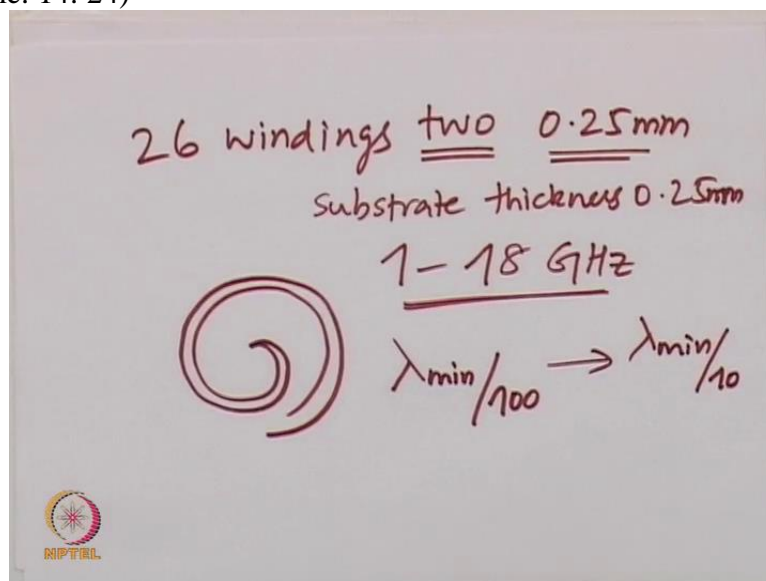 26 windings two 0.25mm
substrate thickness 0.25mm
1-18 GHz
λmin/100 → λmin/10
NPTEL